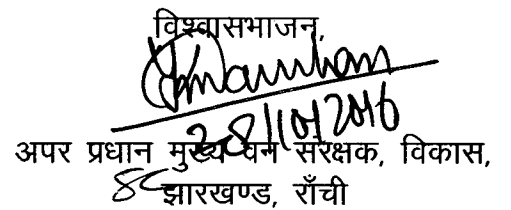 विश्वासभाजन,
28/10/2016
अपर प्रधान मुख्य वन संरक्षक, विकास,
झारखण्ड, राँची